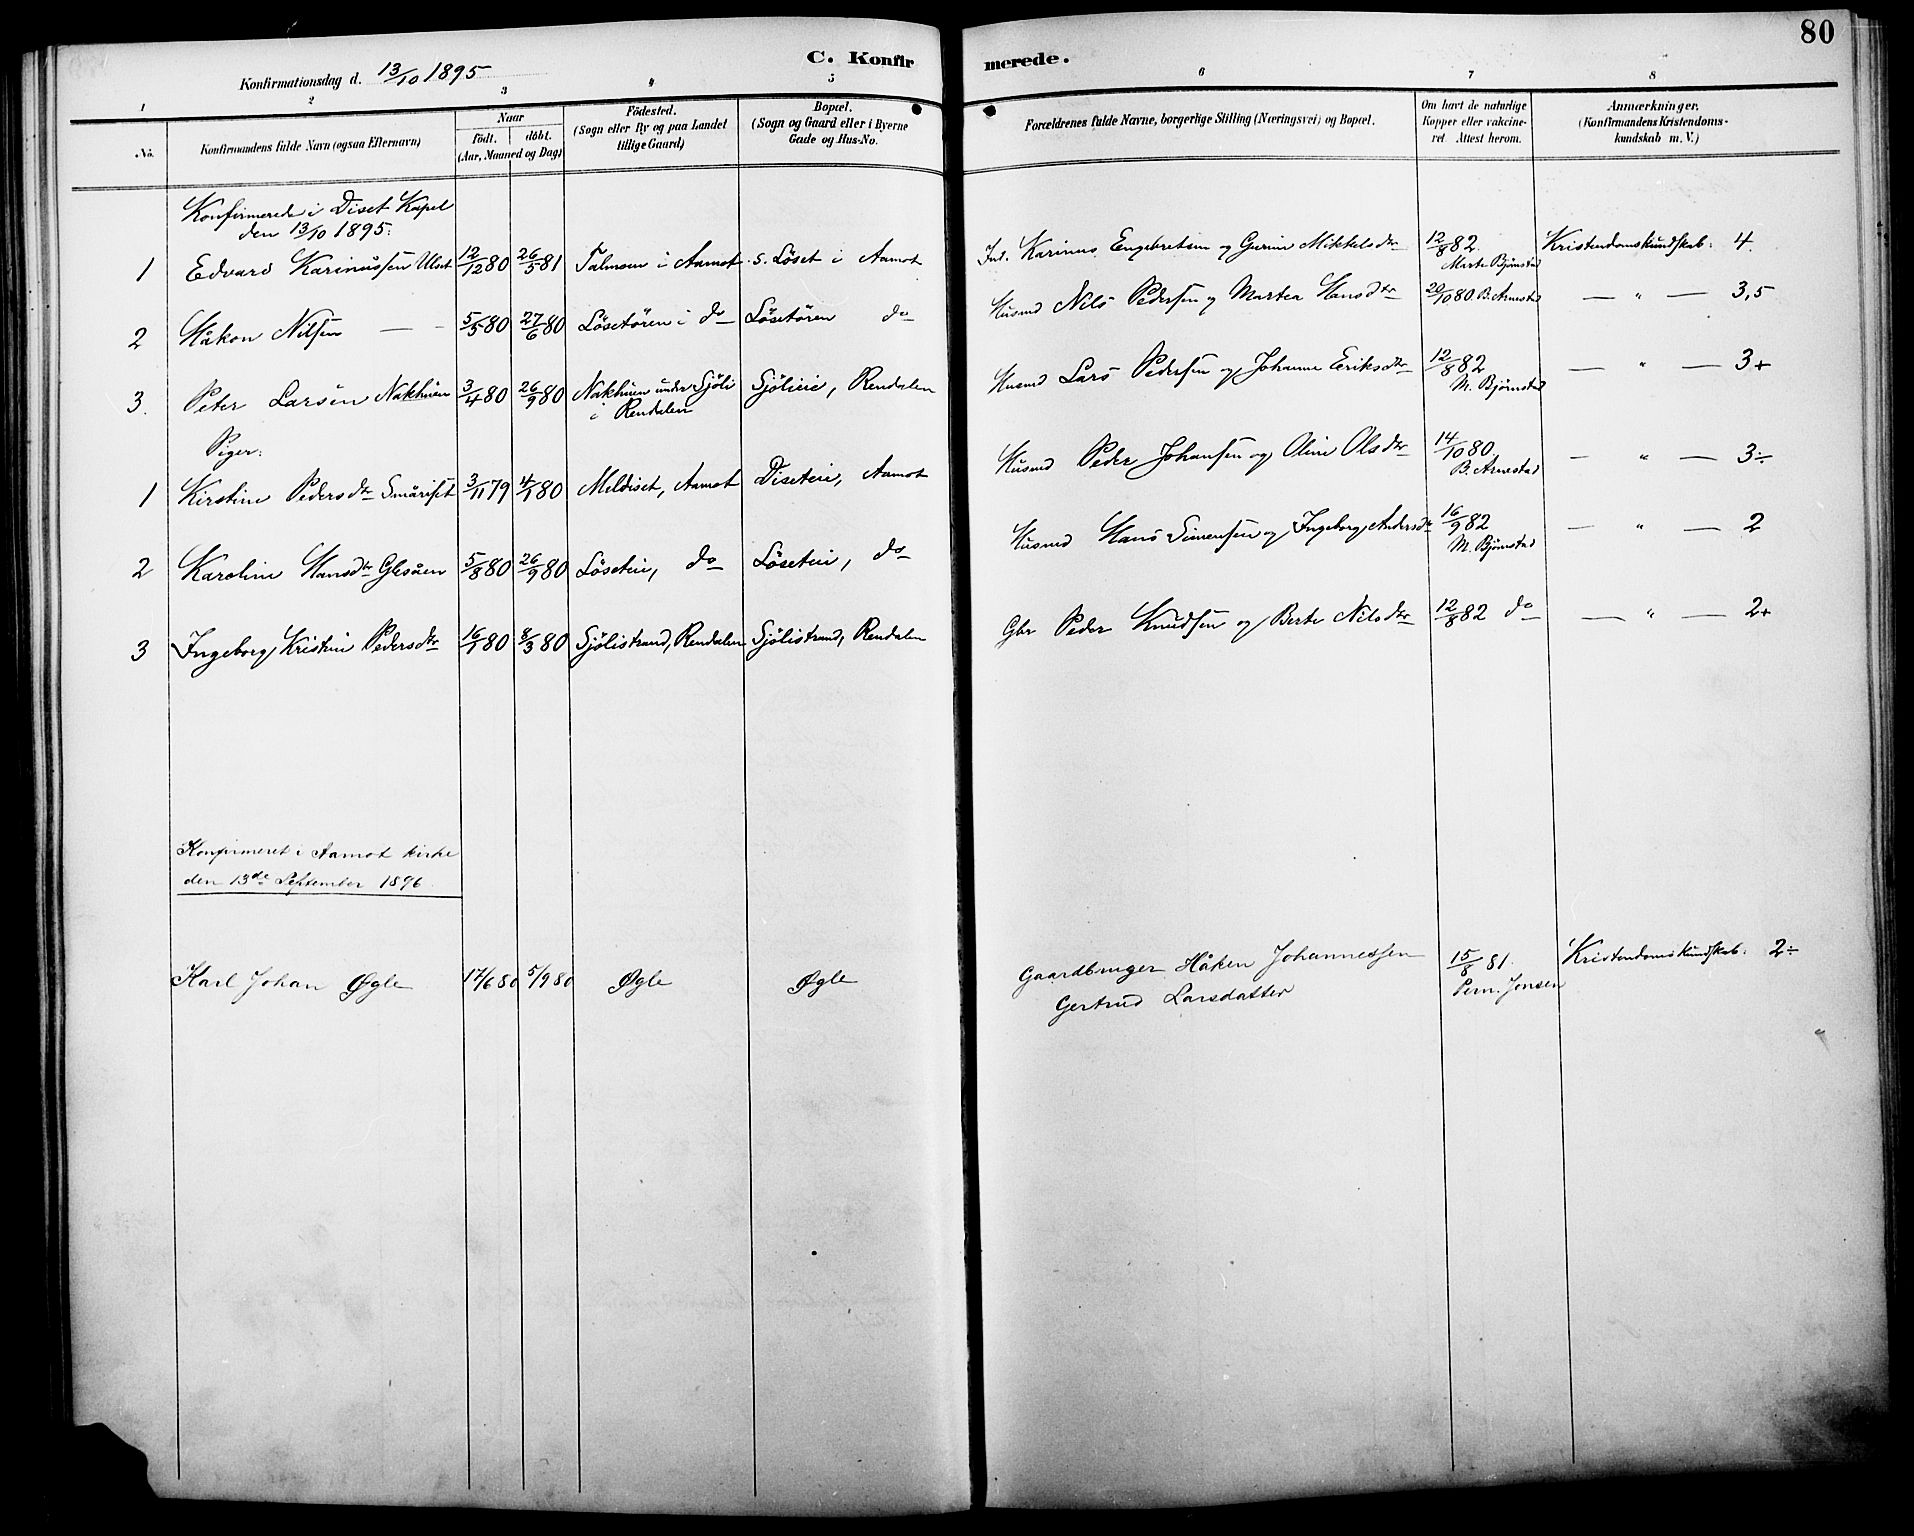 80
C. Konfirmerede.
Konfirmationsdag d. 13/10 1895
1 2 3 4 5 6 7 8
No.
Konfirmandens fulde Navn (ogsaa Efternavn)
Naar
födt. döbt.
(Aar, Maaned og Dag)
Födested.
(Sogn eller By og paa Landet
tillige Gaard)
Bopæl.
(Sogn og Gaard eller i Byerne
Gade og Hus-No.
Forældrenes fulde Navne, borgerlige Stilling (Næringsvei) og Bopæl.
Om havt de naturlige
Kopper eller vakcine-
ret Attest herom.
Anmærkninger.
(Konfirmandens Kristendoms-
kundskab m. V.)
Konfirmerede i Diset Kapel
den 13/10 1895.
1 Edvard Karinussen Ulset 12/12 80 26/5 81 i Aamot s. Löset i Aamot Karinus Engebretsen og Gurine Mikkelsdtr 12/8 82 Marte Bjørnstad Kristendomskundskab: 4.
2 Håkon Nilsen — 5/5 80 27/6 80 Lösetören i do Lösetören do Husmd Nils Pedersen og Martea Hansdtr 20/10 80 B. Arnestad — " — 3,5
3. Peter Larsen Nakhuen 3/4 80 26/9 80 Nakhuen under Sjöli i Rendalen Sjölieie, Rendalen Husmd Lars Pedersen og Johanne Eriksdtr 12/8 82 M. Bjørnstad — " — 3+
Piger:
1 Kirstine Pedersdtr Smäriset 3/11 79 4/1 80 Meldiset, Aamot Diseteie, Aamot Husmd Peder Johansen og Oline Olsdtr 14/10 80 B. Arnestad — " — 3÷
2 Karoline Hansdtr Glesåen 5/8 80 26/9 80 Löseteie, do Löseteie, do Husmd Hans Simensen og Ingeborg Andersdtr 16/9 82 M. Bjørnstad — " — 2
3 Ingeborg Kristine Pedersdtr 16/1 80 8/3 80 Sjölistrand, Rendalen Sjölistrand, Rendalen Gbr Peder Knudsen og Berte Nilsdtr 12/8 82 do — " — 2+
Konfirmeret i Aamot kirke
den 13de September 1896.
Karl Johan Øgle 17/6 80 5/9 80 Øgle Øgle Gaardbruger Håken Johannessen 15/8 81. Kristendomskundskab: 2÷
Gertrud Larsdatter Pern. Jensen